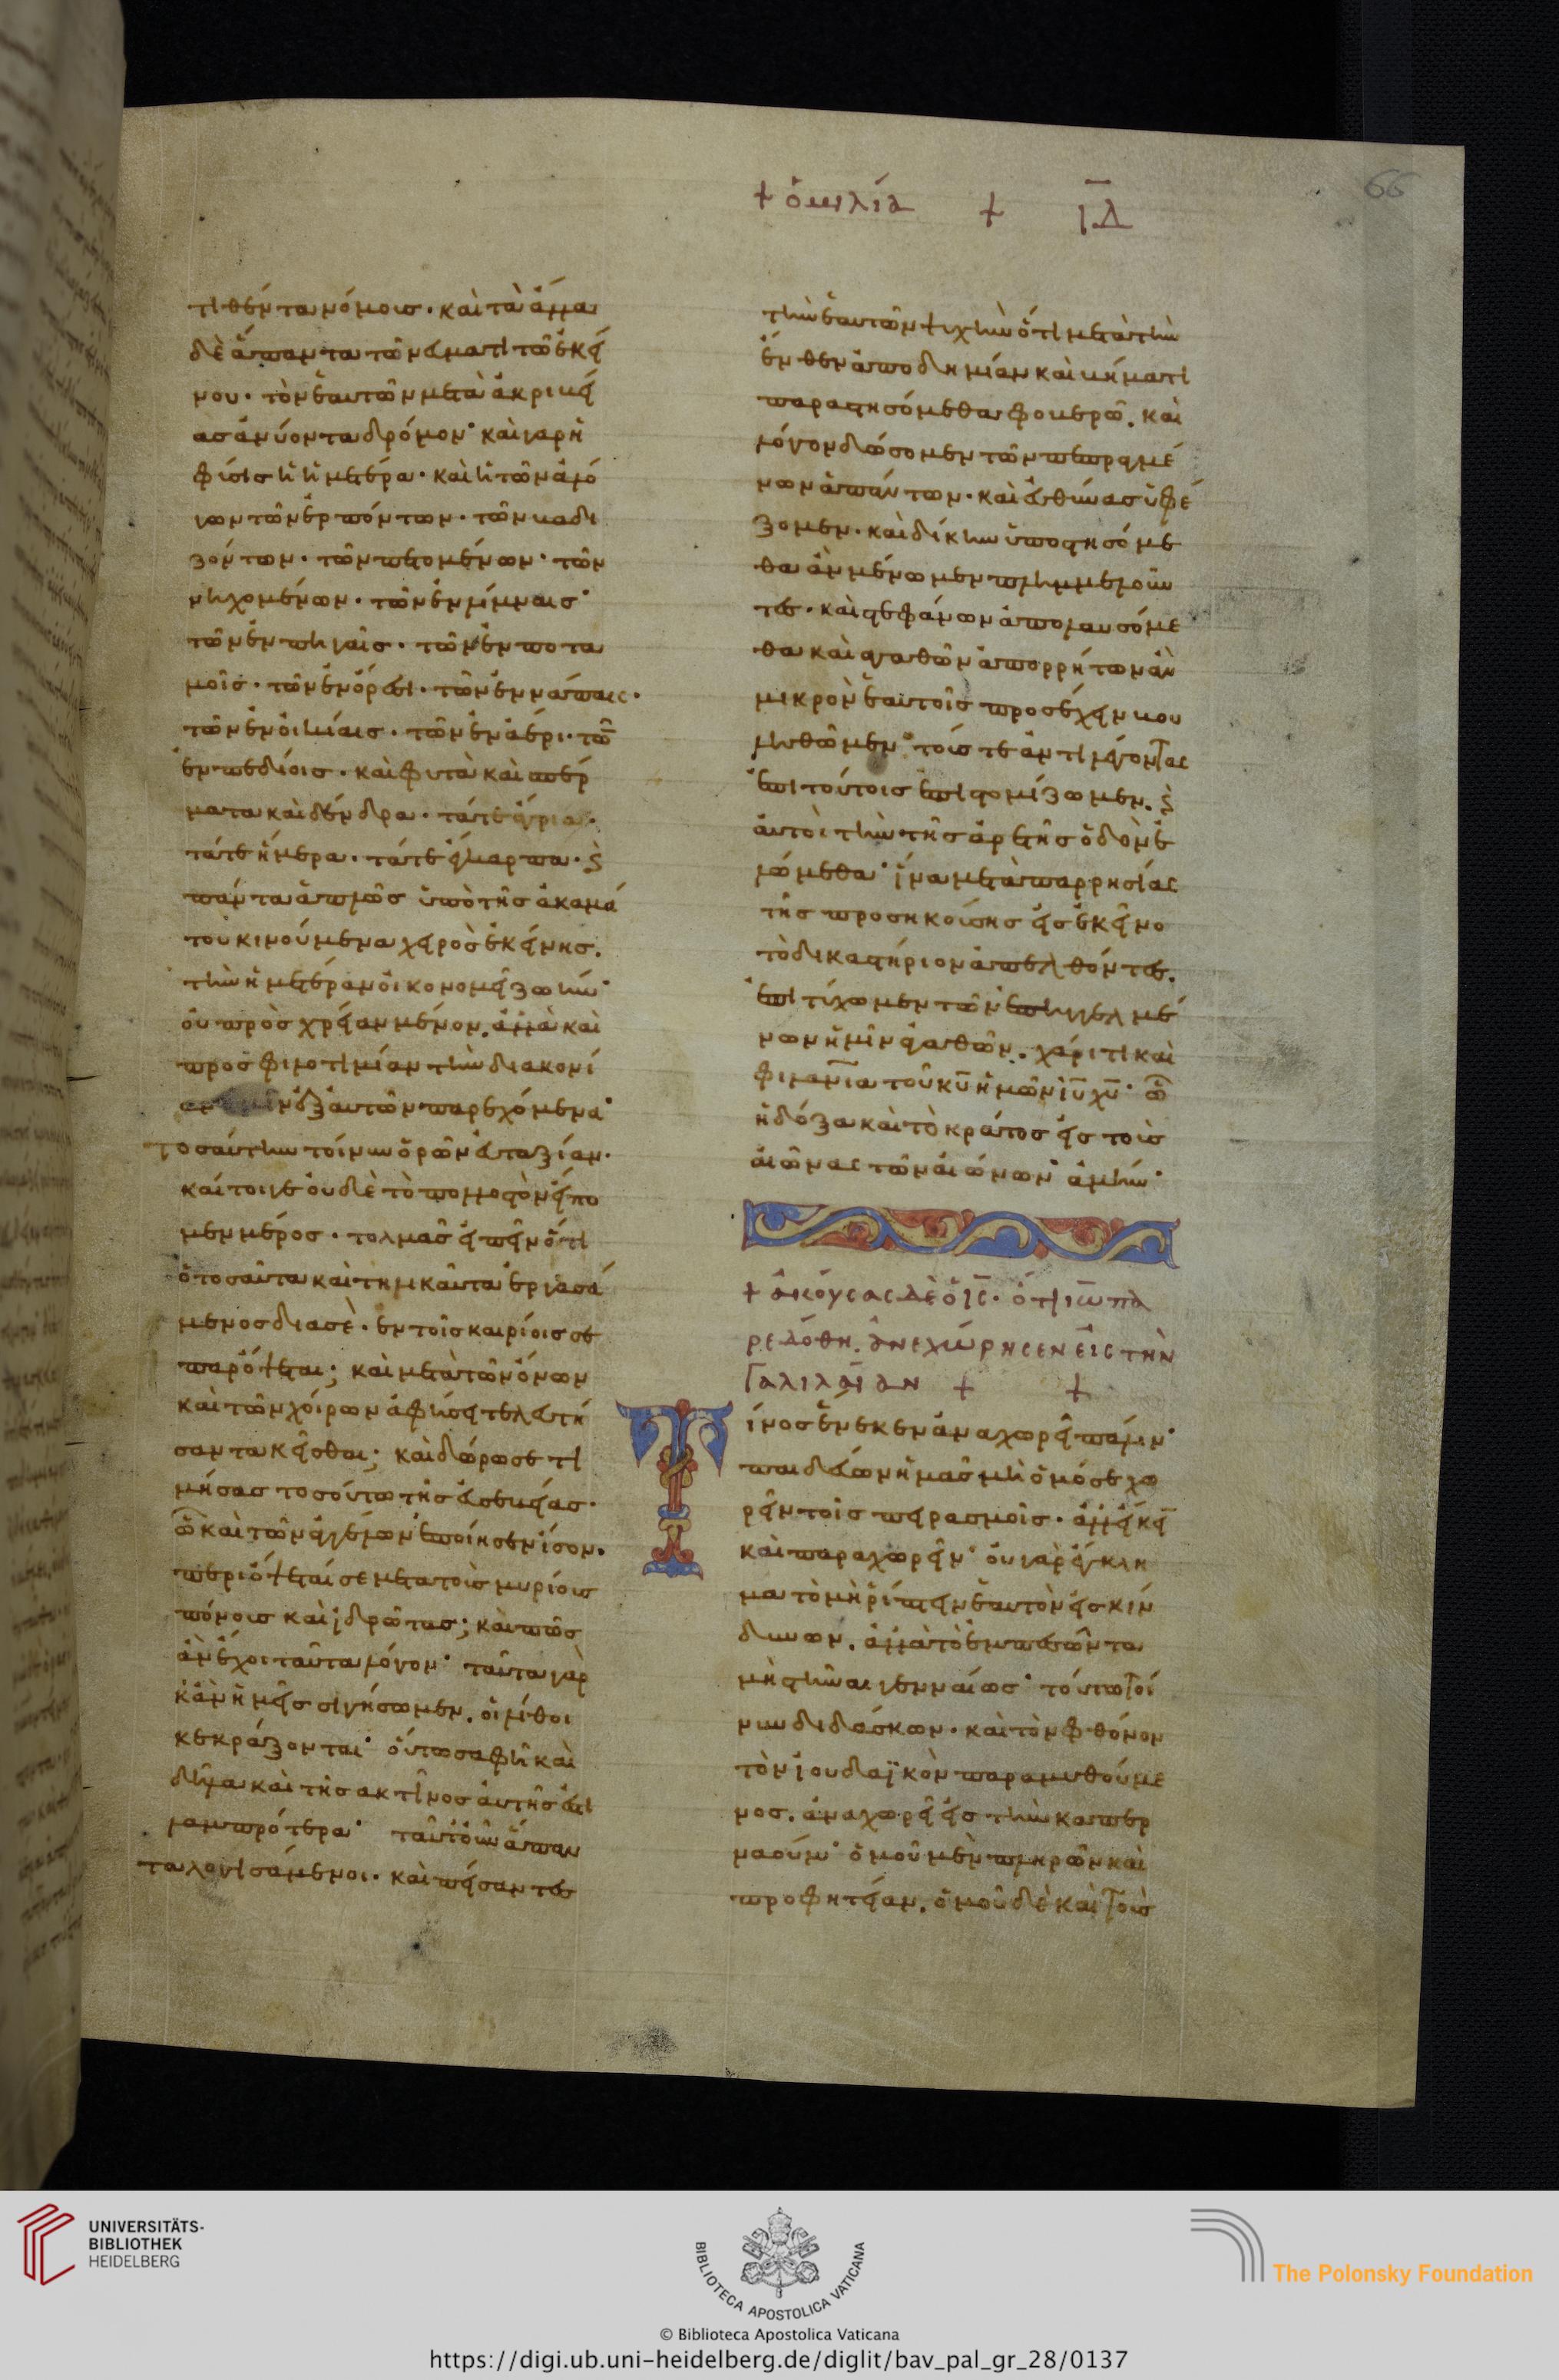 + ὁμιλία + ιδ
66
τιθέντα νόμοις. καὶ τὰ ἄλλα
δὲ ἅπαντα τῶ νεύματι τῶ ἐκεί
νου. τὸν ἑαυτῶν μετὰ ἀκριβεί
ας ἀνύοντα δρόμον· καὶ γὰρ ἡ
φύσις ἡ ἡμετέρα. καὶ ἡ τῶν ἀλό
γων τῶν ἑρπόντων. τῶν βαδι
ζόντων. τῶν πετομένων. τῶν
νηχομένων. τῶν ἐν λίμναις·
τῶν ἐν πηγαῖς. τῶν ἐν ποτα
μοῖς. τῶν ἐν ὄρεσι. τῶν ἐν νάπαις.
τῶν ἐν οἰκίαις. τῶν ἐν ἀέρι. τῶν
ἐν πεδίοις. καὶ φυτὰ καὶ σπέρ
ματα καὶ δένδρα. τά τε ἄγρια.
τά τε ἥμερα. τά τε ἄκαρπα. καὶ
πάντα ἁπλῶς ὑπὸ τῆς ἀκαμά
του κινούμενα χειρὸς ἐκείνης.
τὴν ἡμετέραν οἰκονομεῖ ζωήν·
οὐ πρὸς χρείαν μόνον. ἀλλὰ καὶ
πρὸς φιλοτιμίαν τὴν διακονί
αν ἐξ αὐτῶν παρεχόμενα·
τοσαύτην τοίνυν ὁρῶν εὐταξίαν.
καίτοιγε οὐδὲ τὸ πολλοστὸν εἴπο
μεν μέρος. τολμᾶς εἰπεῖν ὅτι
ὁ τοσαῦτα καὶ τηλικαῦτα ἐργασά
μενος διὰ σὲ. ἐν τοῖς καιρίοις σε
παρόψεται; καὶ μετὰ τῶν ὄνων
καὶ τῶν χοίρων ἀφήσει τελευτή
σαντα κεῖσθαι; καὶ δώρω σε τι
μήσας τοσούτω τῆς εὐσεβείας.
ὧ καὶ τῶν ἀγγέλων ἐποίησεν ἴσον.
περιόψεταί σε μετὰ τοὺς μυρίους
πόνους καὶ ἱδρῶτας; καὶ πῶς
ἂν ἔχοι ταῦτα λόγον· ταῦτα γὰρ
κἂν ἡμεῖς σιγήσωμεν. οἱ λίθοι
κεκράξονται· οὕτω σαφῆ καὶ
δῆλα καὶ τῆς ἀκτῖνος αὐτῆς ἐστι
λαμπρότερα· ταῦτ' οὖν ἅπαν
τα λογισάμενοι. καὶ πείσαντες
τὴν ἑαυτῶν ψυχὴν ὅτι μετὰ τὴν
ἔνθεν ἀποδημίαν καὶ βήματι
παραστησόμεθα φοβερῶ. καὶ
λόγον δώσομεν τῶν πεπραγμέ
νων ἁπάντων. καὶ εὐθύνας ὑφέ
ξομεν. καὶ δίκην ὑποστησόμε
θα ἂν μένωμεν πλημμελοῦν
τες. καὶ στεφάνων ἀπολαυσόμε
θα καὶ ἀγαθῶν ἀπορρήτων ἂν
μικρὸν ἑαυτοῖς προσέχειν βου
ληθῶμεν· τούς τε ἀντιλέγοντας
ἐπὶ τούτοις ἐπιστομίζωμεν. καὶ
αὐτοὶ τὴν τῆς ἀρετῆς ὁδὸν ἑ
λώμεθα· ἵνα μετὰ παρρησίας
τῆς προσηκούσης εἰς ἐκεῖνο
τὸ δικαστήριον ἀπελθόντες.
ἐπιτύχωμεν τῶν ἐπηγγελμέ
νων ἡμῖν ἀγαθῶν. χάριτι καὶ
φιλανία τοῦ κυ ἡμῶν ιυ χυ· ὧ
ἡ δόξα καὶ τὸ κράτος εἰς τοὺς
αἰῶνας τῶν αἰώνων ἀμήν·
+ ἀκούσας δὲ ὁ ις. ὅτι ιω πα
ρεδόθη. ἀνεχώρησεν εἰς τὴν
Γαλιλαίαν + +
Τίνος ἕνεκεν ἀναχωρεῖ πάλιν·
παιδεύων ἡμᾶς μὴ ὁμόσε χω
ρεῖν τοῖς πειρασμοῖς. ἀλλ' εἴκειν
καὶ παραχωρεῖν· οὐ γὰρ ἔγκλη
μα τὸ μὴ ῥίπτειν ἑαυτὸν εἰς κίν
δυνον. ἀλλὰ τὸ ἐμπεσόντα
μὴ στῆναι γενναίως· τοῦτο τοί
νυν διδάσκων. καὶ τὸν φθόνον
τὸν ἰουδαϊκὸν παραμυθούμε
νος. ἀναχωρεῖ εἰς τὴν καπερ
ναούμ· ὁμοῦ μὲν πληρῶν καὶ
προφητείαν. ὁμοῦ δὲ καὶ τοὺς
UNIVERSITÄTS-
BIBLIOTHEK
HEIDELBERG
BIBLIOTECA APOSTOLICA VATICANA
The Polonsky Foundation
© Biblioteca Apostolica Vaticana
https://digi.ub.uni-heidelberg.de/diglit/bav_pal_gr_28/0137